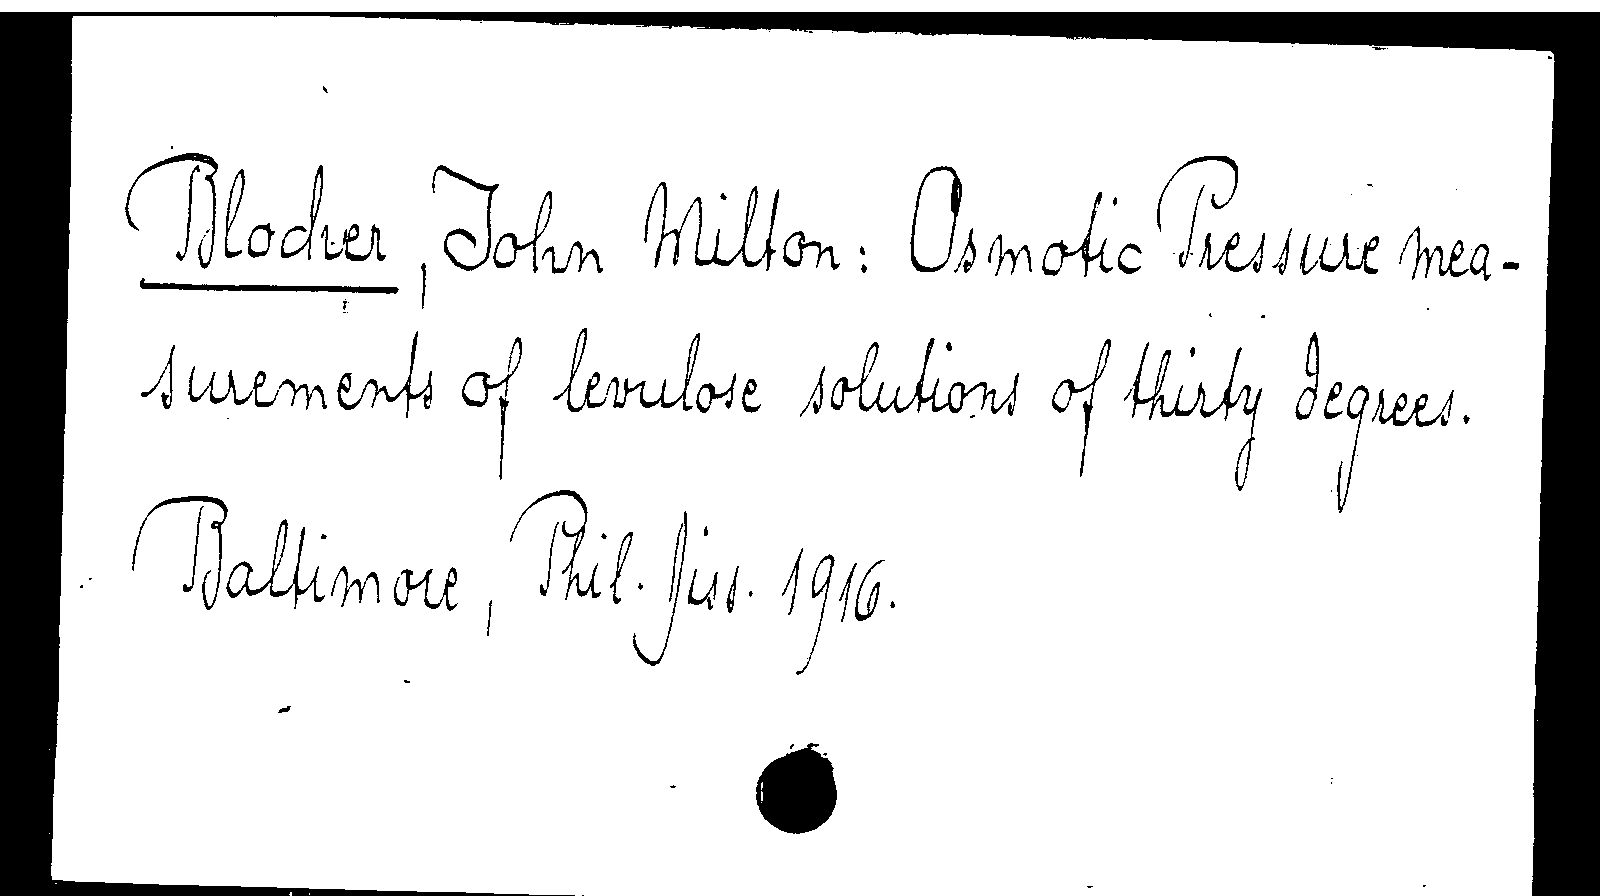 Blocher, John Milton: Osmotic Pressure mea-
surements of levulose solutions of thirty degrees.
Baltimore, Phil. Diss. 1916.